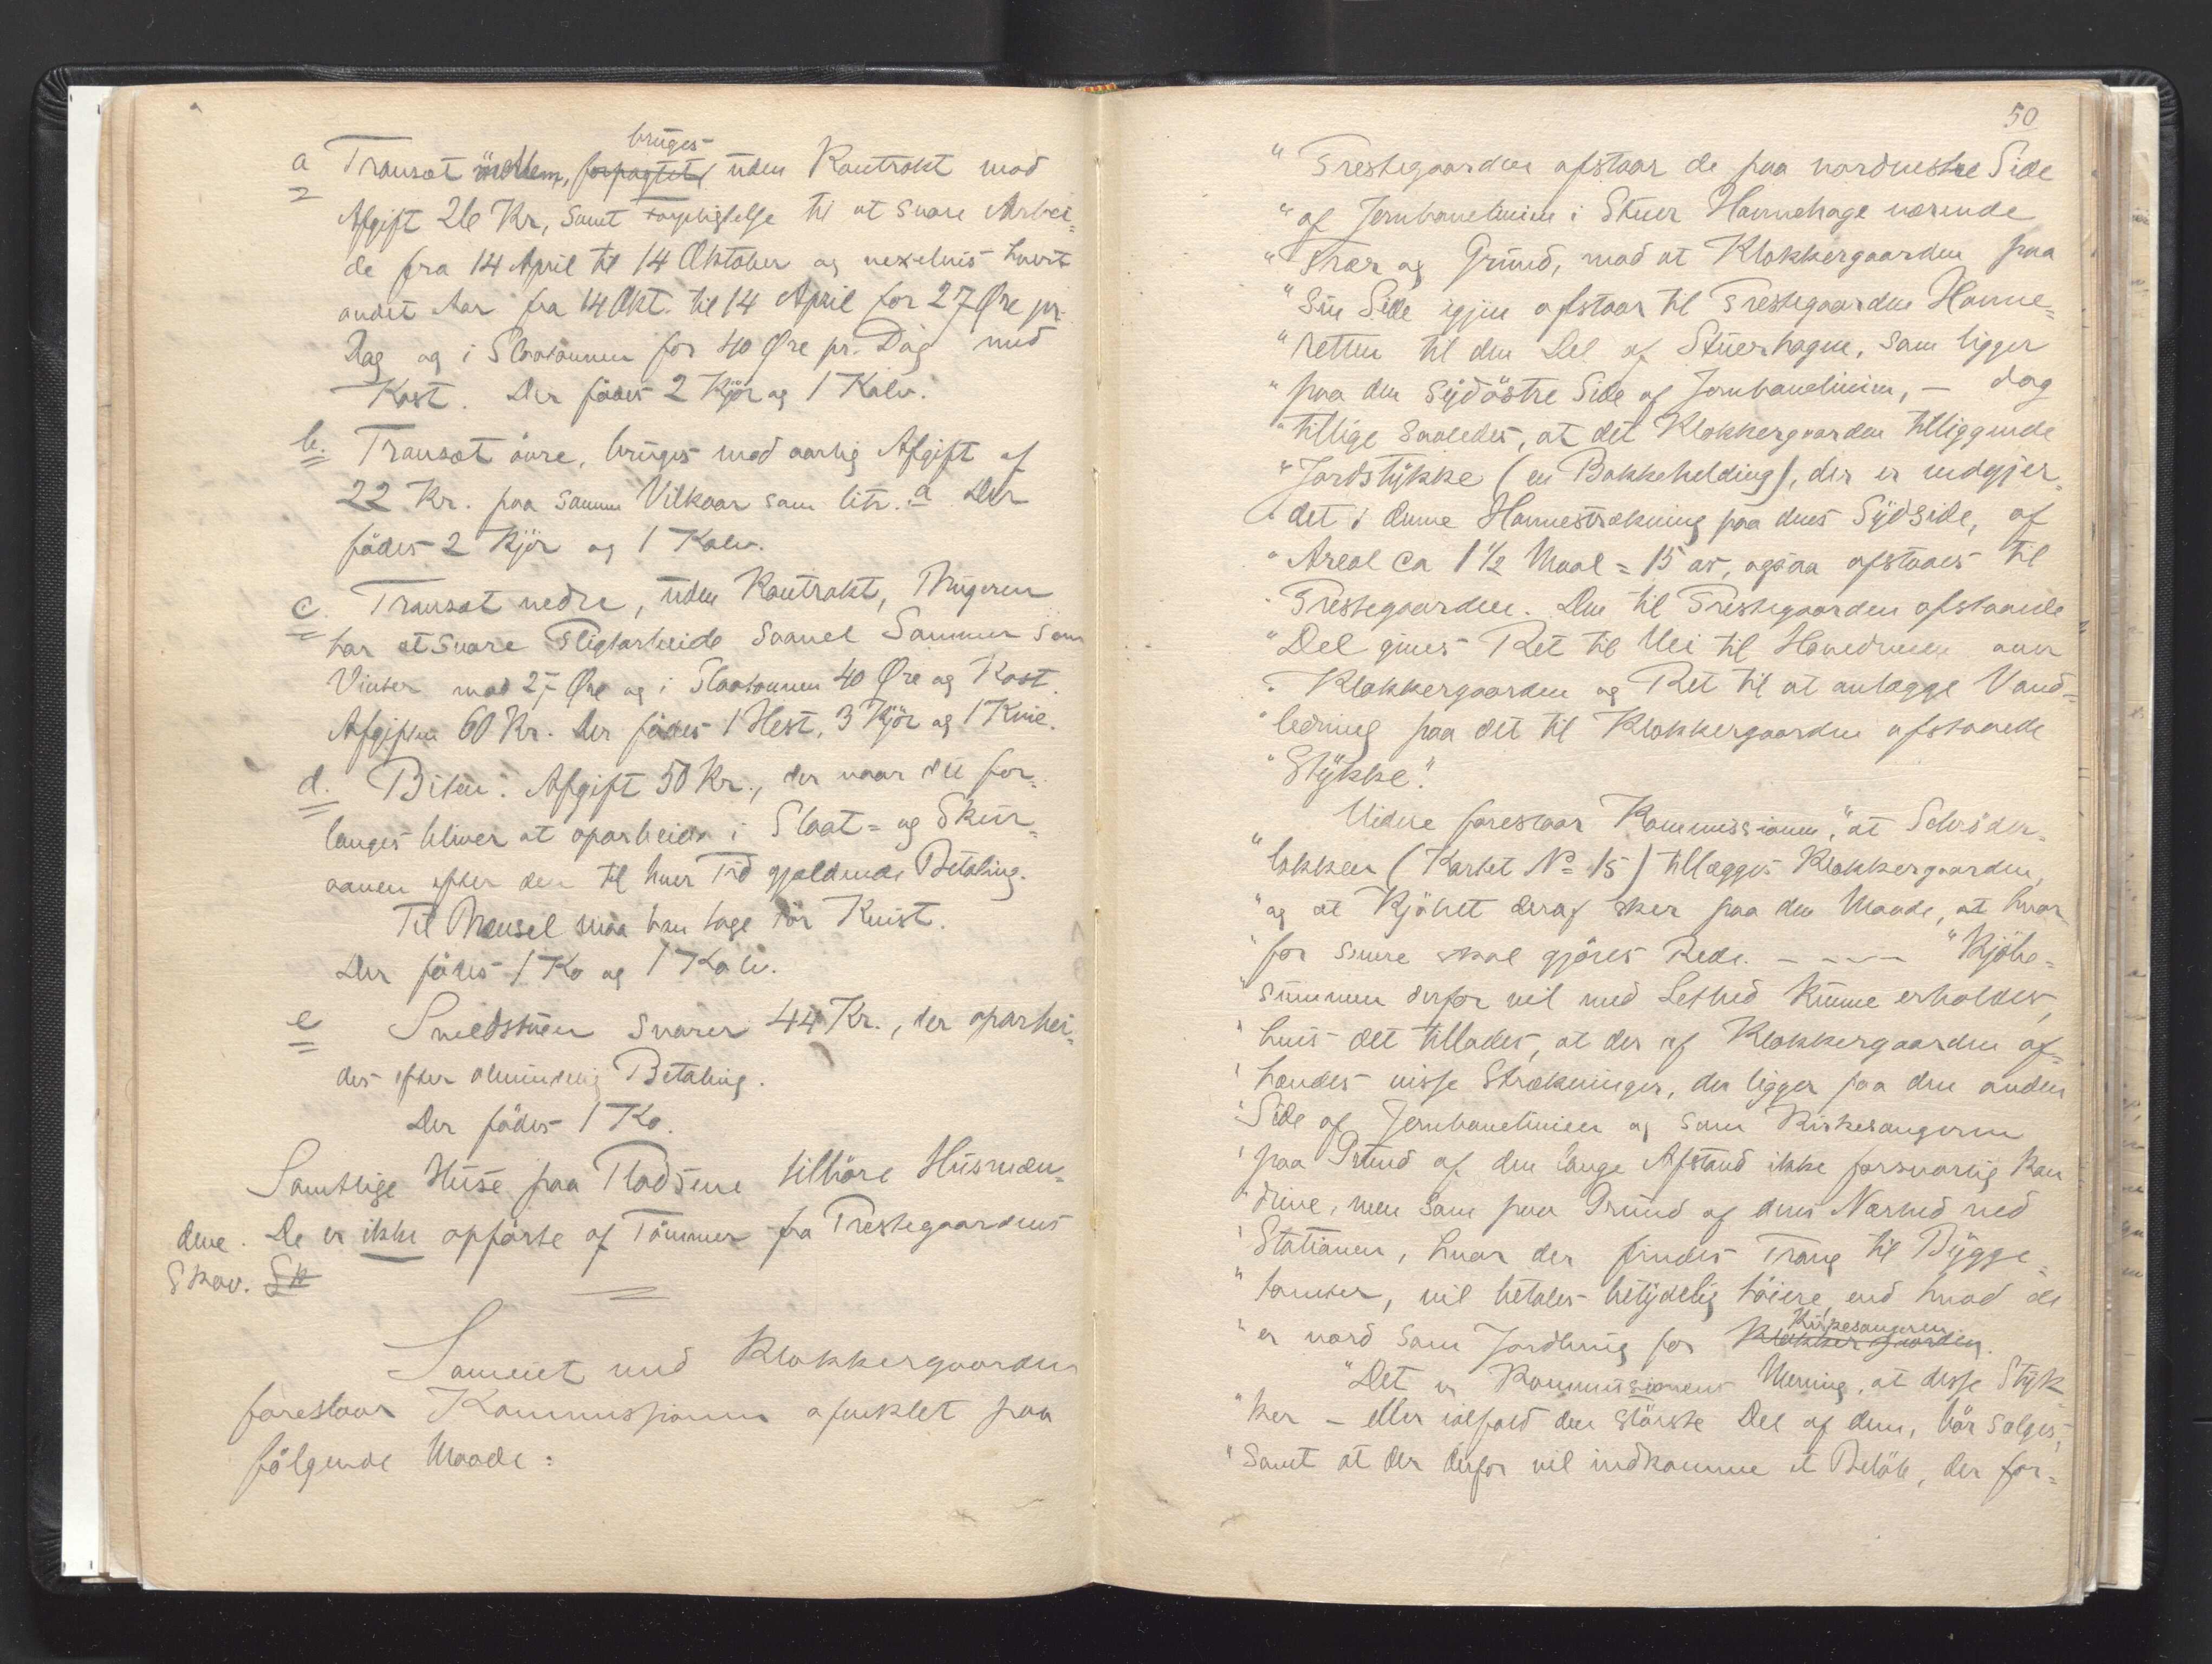 a Transæt mellem, forpagtet bruges uden Kontrakt mod
Afgift 26 Kr, samt Forpligtelse til at svare Arbei=
de fra 14 April til 14 Oktober og vexelvis hvert
andet Aar fra 14 Okt. til 14 April for 27 Øre pr.
Dag og i Slaataannen for 40 Øre pr. Dag med
Kost. Der födes 2 Kjör og 1 Kalv.
b. Transæt övre, bruges mod aarlig Afgift af
22 Kr. paa samme Vilkaar som litr. a Der
födes 2 Kjör og 1 Kalv.
c. Transæt nedre, uden Kontrakt, Brugeren
har at svare Pligtarbeide saavel Sommer som
Vinter mod 27 Øre og i Slaataannen 40 Øre og Kost.
Afgiften 60 Kr. Der födes 1 Hest, 3 Kjör og 1 Kvie.
d. Afgift 50 Kr., der naar det for=
langes bliver at oparbeide i Slaat= og Skur=
aannen efter den til hver Tid gjældende Betaling.
Til Brænsel maa han tage tör Kvist.
Der födes 1 Ko og 1 Kalv.
e Smedstuen svarer 44 Kr., der oparbei=
des efter almindelig Betaling.
Der födes 1 Ko.
Samtlige Huse paa Pladsene tilhöre Husmæn=
dene. De er ikke opförte af Tömmer fra Prestegaardens
Skov. Sk
Sameiet med Klokkergaarden
foreslaar Kommissionen afviklet paa
fölgende Maade:
50
" Prestegaarden afstaar de paa nordvestre Side
" af Jernbanelinien i Stuer Havnehage værende
" Træer og Grund, mod at Klokkergaarden paa
" sin Side igjen afstaar til Prestegaarden Havne=
" retten til den Del af Stuerhagen, som ligger
" paa den sydöstre Side af Jernbanelinien, – dog
" tillige saaledes, at det Klokkergaarden tilliggende
" Jordstykke (en Bakkehelding), der er indgjer=
" det i denne Havnestrækning paa dens Sydside, af
" Areal ca 1 1/2 Maal = 15 ar, ogsaa afstaaes til
" Prestegaarden. Den til Prestegaarden afstaaede
" Del gives Ret til Vei til over
" Klokkergaarden og Ret til at anlægge Vand=
" ledning paa det til Klokkergaarden afstaaede
" Stykke".
Videre foreslaar Kommissionen, "at Schröder=
" løkken (Kartet No 15) tillægges Klokkergaarden,
" og at Kjöbet deraf sker paa den Maade, at hvor
" for senere skal gjöres Rede. – – – – "Kjöbe=
" summen derfor vil med Lethed kunne erholdes,
" hvis det tillades, at der af Klokkergaarden af=
" hændes visse Strækninger, der ligger paa den anden
" Side af Jernbanelinien og som Kirkesangeren
" paa Grund af den lange Afstand ikke forsvarlig kan
" drive, men som paa Grund af dens Nærhed ved
" Stationen, hvor der findes Trang til Bygge=
" tomter, vil betales betydelig höiere, end hvad de
" er værd som Jordbrug for Klokkergaarden Kirkesangeren.
" Det er Kommissionens Mening, at disse Styk=
" ker – eller ialfald den störste Del af dem, bör sælges,
" samt at der derfor vil indkomme et Belöb, der for=